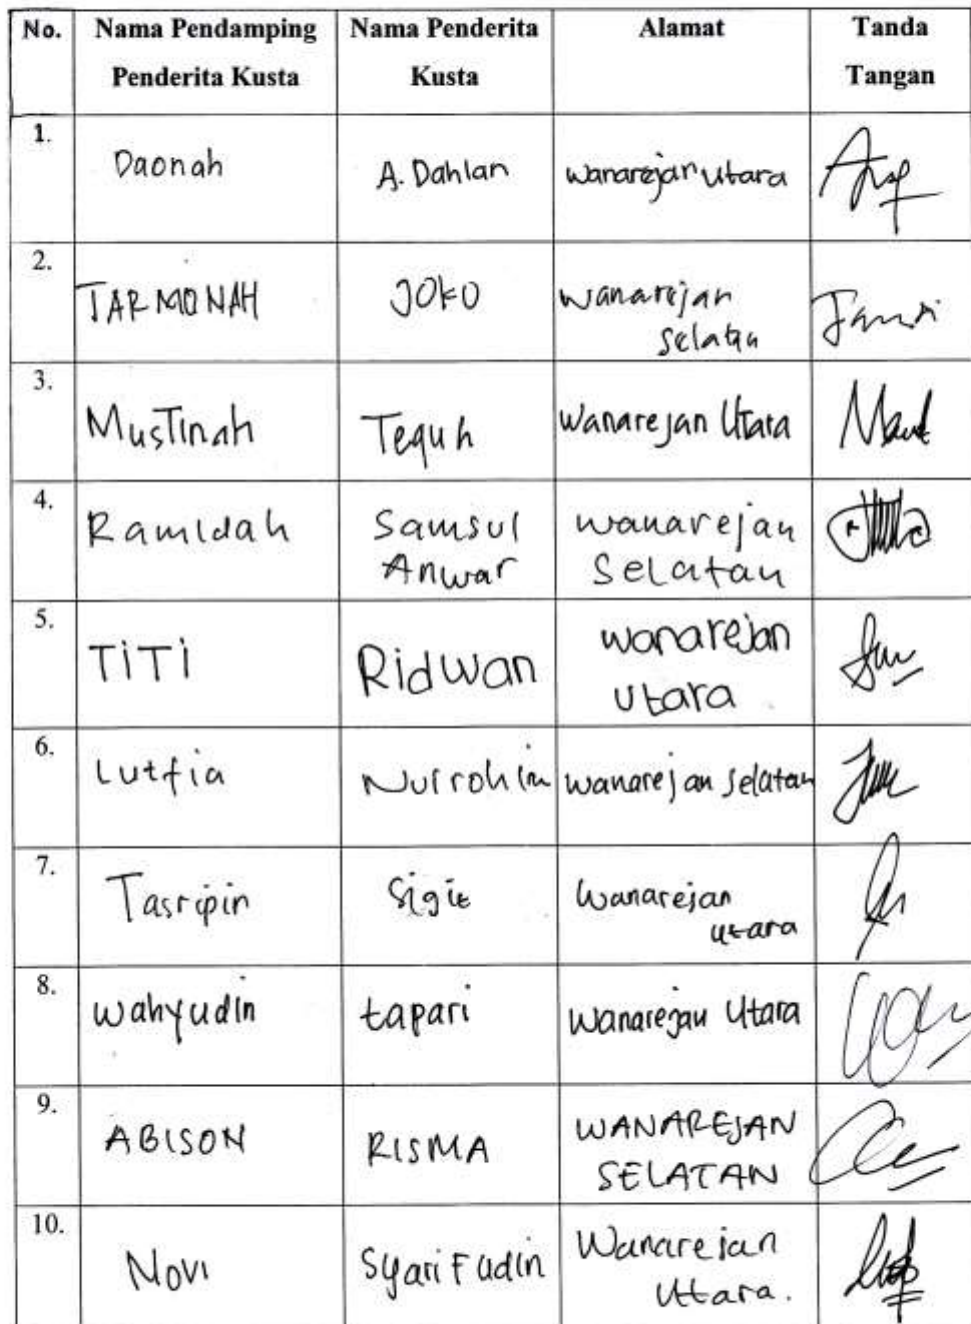 No. Nama Pendamping Penderita Kusta Nama Penderita Kusta Alamat Tanda Tangan
1. Daonah A. Dahlan Wanarejan Utara
2. TARMONAH JOKO Wanarejan Selatan
3. Mustinah Teguh Wanarejan Utara
4. Ramidah Samsul Anwar Wanarejan Selatan
5. TiTi Ridwan Wanarejan Utara
6. Lutfia Nurrohim Wanarejan Selatan
7. Tasripin Sigit Wanarejan Utara
8. Wahyudin tapari Wanarejan Utara
9. ABISON RISMA WANAREJAN SELATAN
10. Novi Syarifudin Wanarejan Utara.